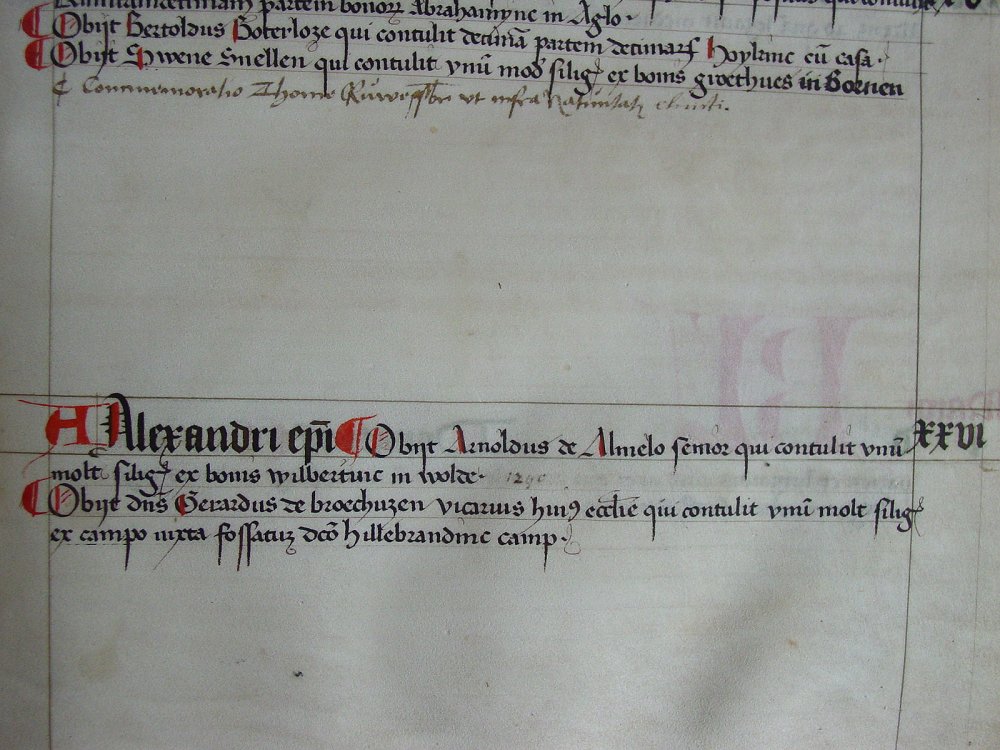 partem bonorr Abrahamync in Aglo.
Obijt Bertoldus Boterloze qui contulit decimā partem decimarꝫ hoylinc cū casa.
Obijt Swene Snellen qui contulit vnū mod siligꝭ ex bonis groethues in Boenen
Commemoratio Thome ut infra Natiuitatꝭ christi.
A Alexandri epī Obijt Arnoldus de Almelo senior qui contulit vnū xxvi
molt siligꝭ ex bonis wilbertinc in wolde. 1290
Obijt dn̄s Gerardus de broechuzen vicarius huiꝰ ecclīe qui contulit vnū molt siligꝭ
ex campo iuxta fossatuꝫ dc̄o hillebrandinc camp.